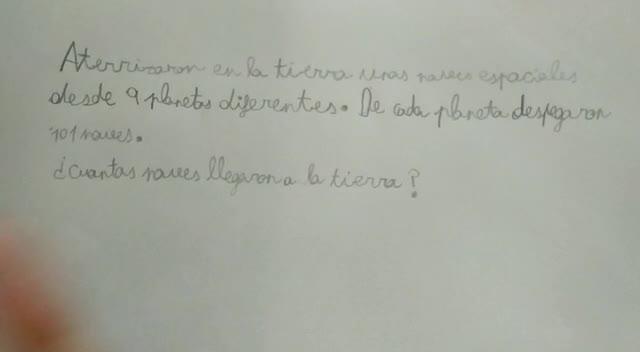 Aterrizaron en la tierra unas naves espaciales
desde 9 planetas diferentes. De cada planeta despegaron
101 naves.
¿Cuantas naves llegaron a la tierra?